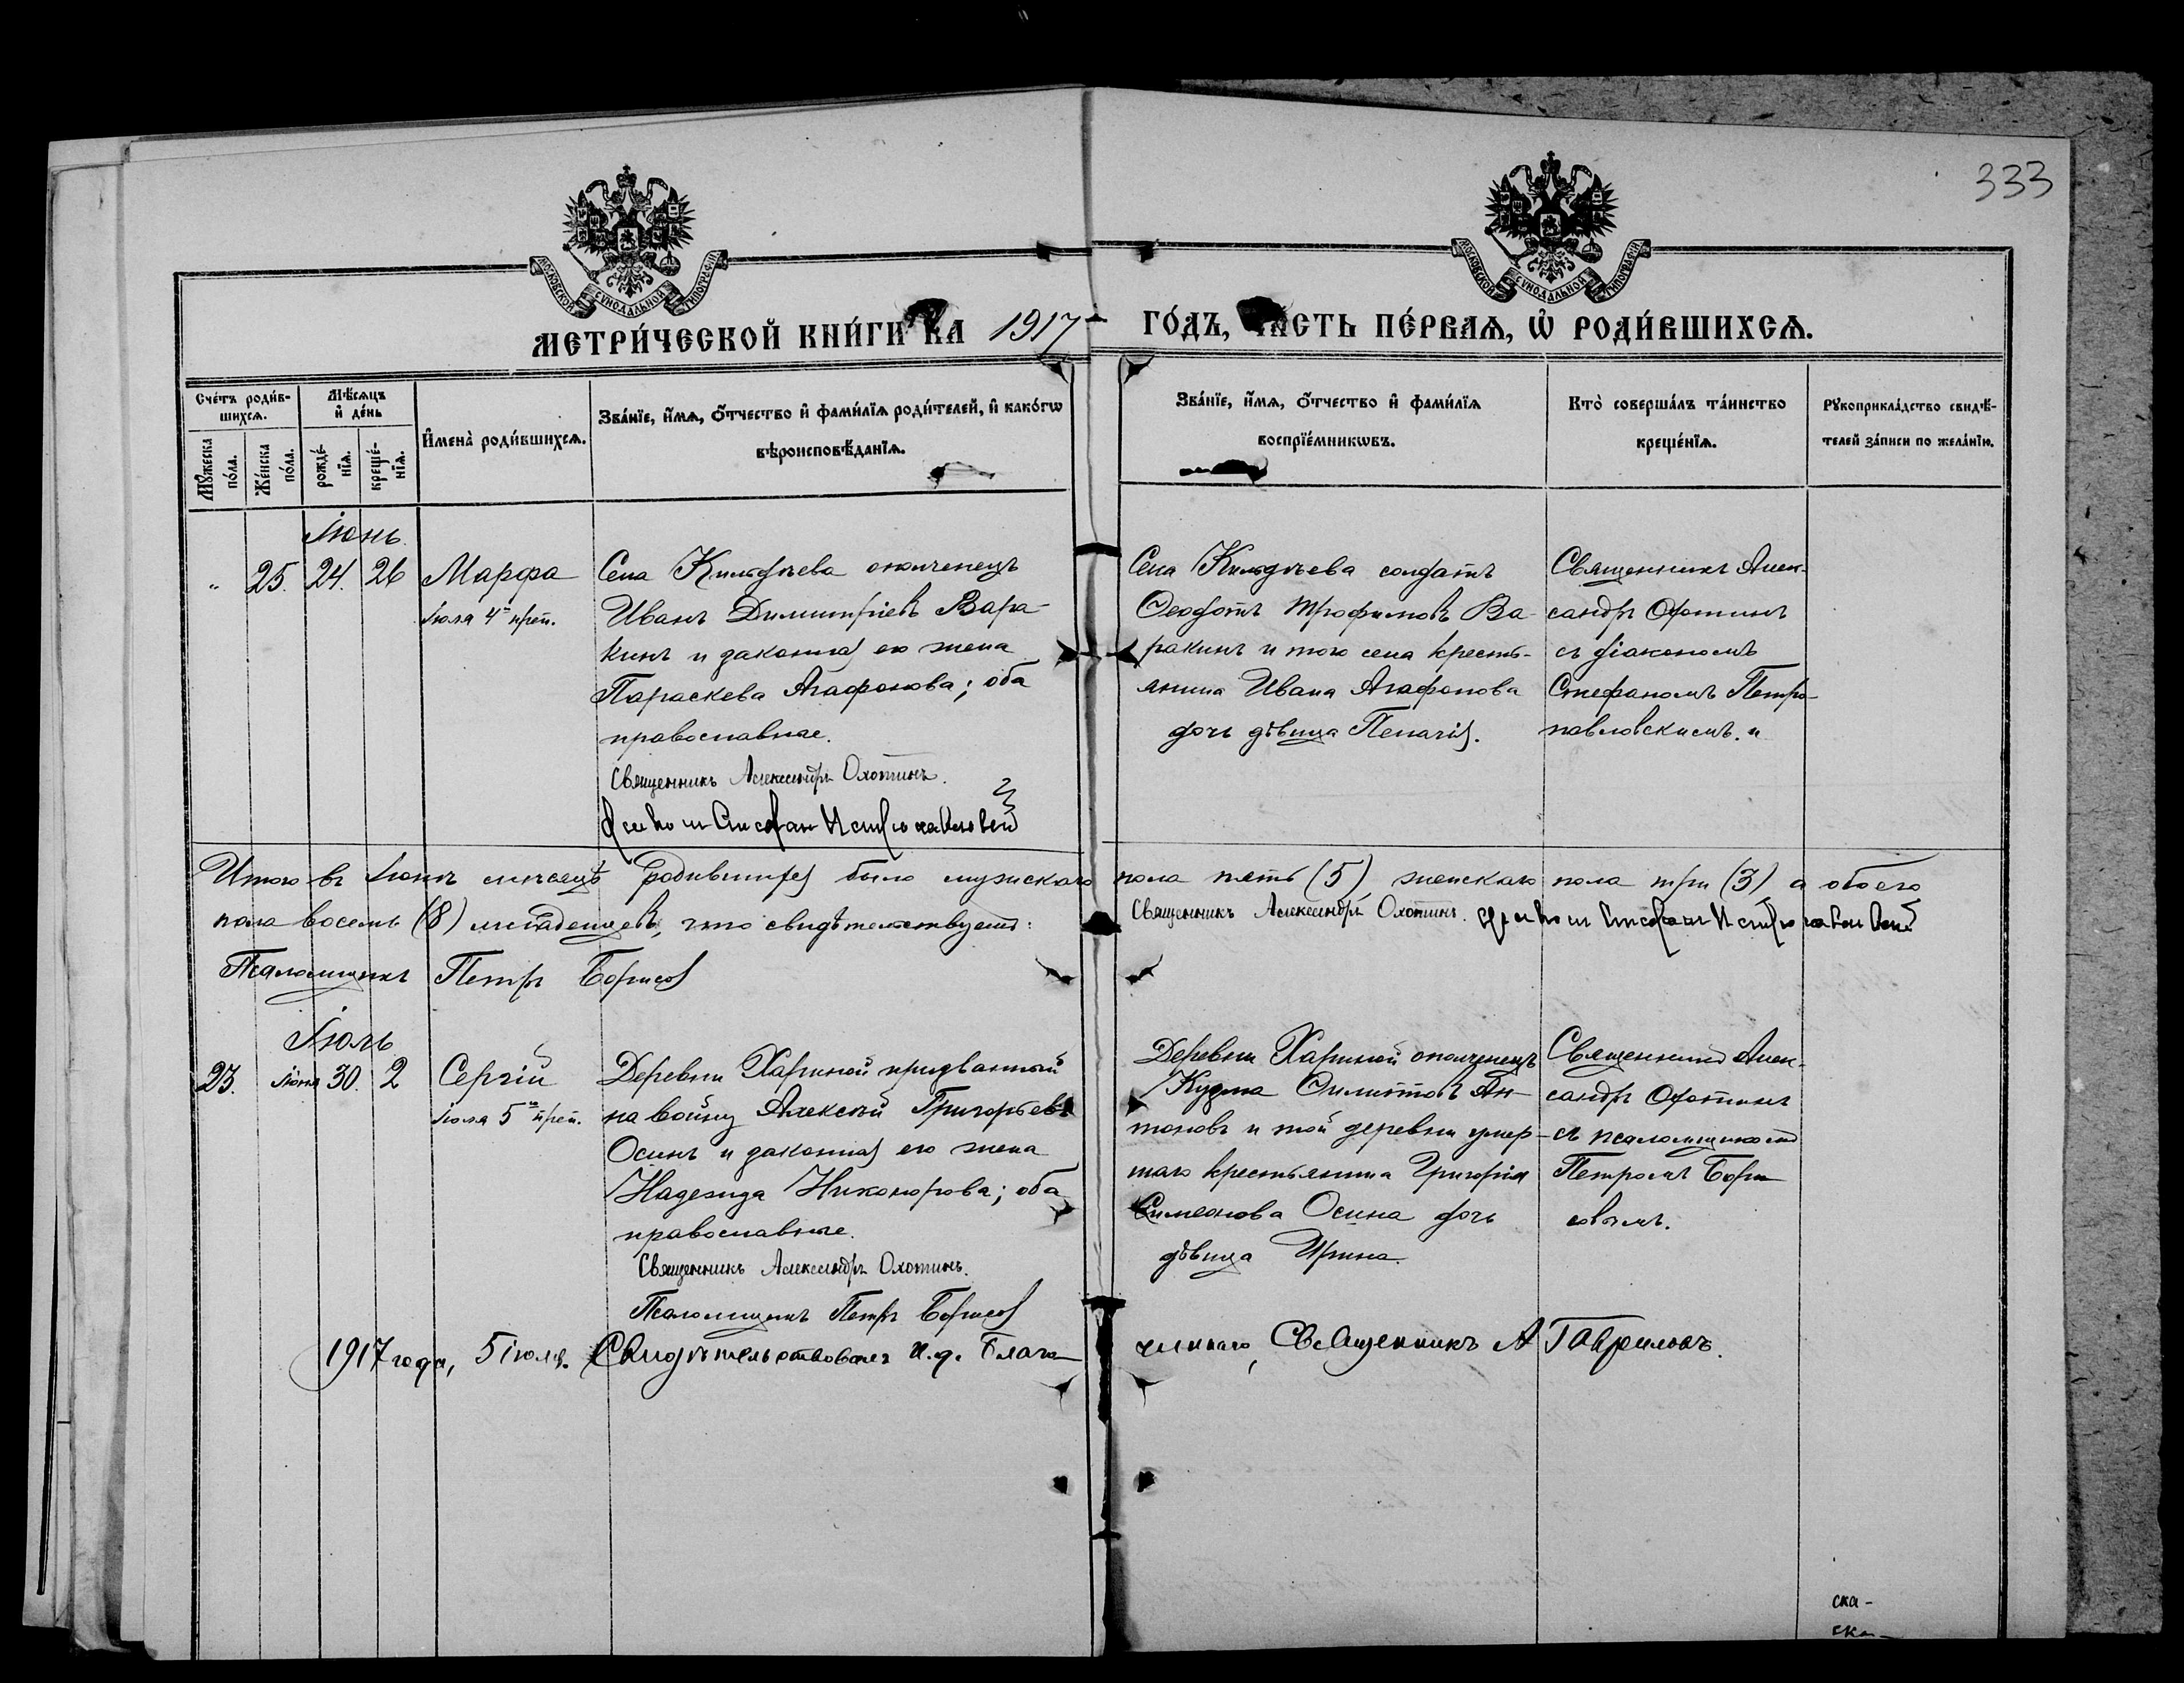 333
МОСКОВСКОЙ СУНОДАЛЬНОЙ ТИПОГРАФІИ
МОСКОВСКОЙ СУНОДАЛЬНОЙ ТИПОГРАФІИ
МЕТРИ́ЧЕСКОЙ КНИ́ГИ НА 1917 ГО́ДЪ, ЧА́СТЬ ПЕ́РВАѦ, Ѽ РОДИ́ВШИХСѦ.
Сче́тъ роди́в-
шихсѧ.
Мꙋжеска по́ла.
Же́нска по́ла.
Мѣ́сяцъ и҆ де́нь
рожде́-нїѧ.
креще́-нїѧ.
И҆мена̀ роди́вшихсѧ.
Зва́нїе, и҆́мѧ, ѻ҆́тчество и҆ фами́лїѧ роди́телей, и҆ како́гѡ
вѣроисповѣ́данїѧ.
Зва́нїе, и҆́мѧ, ѻ҆́тчество и҆ фами́лїѧ
воспрїе́мникѡвъ.
Кто̀ соверша́лъ та́инство
креще́нїѧ.
Рꙋкоприкла́дство свидѣ́-
телей за́писи по жела́нїю.
Іюнь
" 25. 24. 26 Марфа
Іюля 4го преп.
Села Кильдѣева ополченецъ
Иванъ Димитріевъ Вара-
кинъ и законная его жена
Параскева Агафонова; оба
православные.
Священникъ Александръ Охотинъ.
Села Кильдѣева солдатъ
Ѳеодотъ Трофимовъ Ва-
ракинъ и того села кресть-
янина Ивана Агафонова
дочь дѣвица Пелагія.
Священникъ Алек-
сандръ Охотинъ
съ діакономъ
Стефаномъ Петро-
павловскимъ. "
Итого въ Іюнѣ мѣсяцѣ родившихся было мужскаго пола пять (5), женскаго пола три (3) а обоего
пола восемь (8) младенцевъ, что свидѣтельствуетъ: Священникъ Александръ Охотинъ.
Псаломщикъ Петръ Борисов
Іюль
23. Іюня 30. 2 Сергій
Іюля 5го преп.
Деревни Хариной призванный
на войну Алексѣй Григорьевъ
Осинъ и законная его жена
Надежда Никонорова; оба
православные.
Священникъ Александръ Охотинъ.
Псаломщикъ Петръ Борисов
Деревни Хариной ополченецъ
Кузма Ан-
тоновъ и той деревни умер-
шаго крестьянина Григорія
Симеонова Осина дочь
дѣвица Ирина.
Священникъ Алек-
сандръ Охотинъ
съ псаломщикомъ
Петромъ Бори-
совымъ.
1917 года, 5 іюля. Свидѣтельствовалъ и.д. Благо-
чиннаго, Священникъ А Гавриловъ.
ска-
ска-